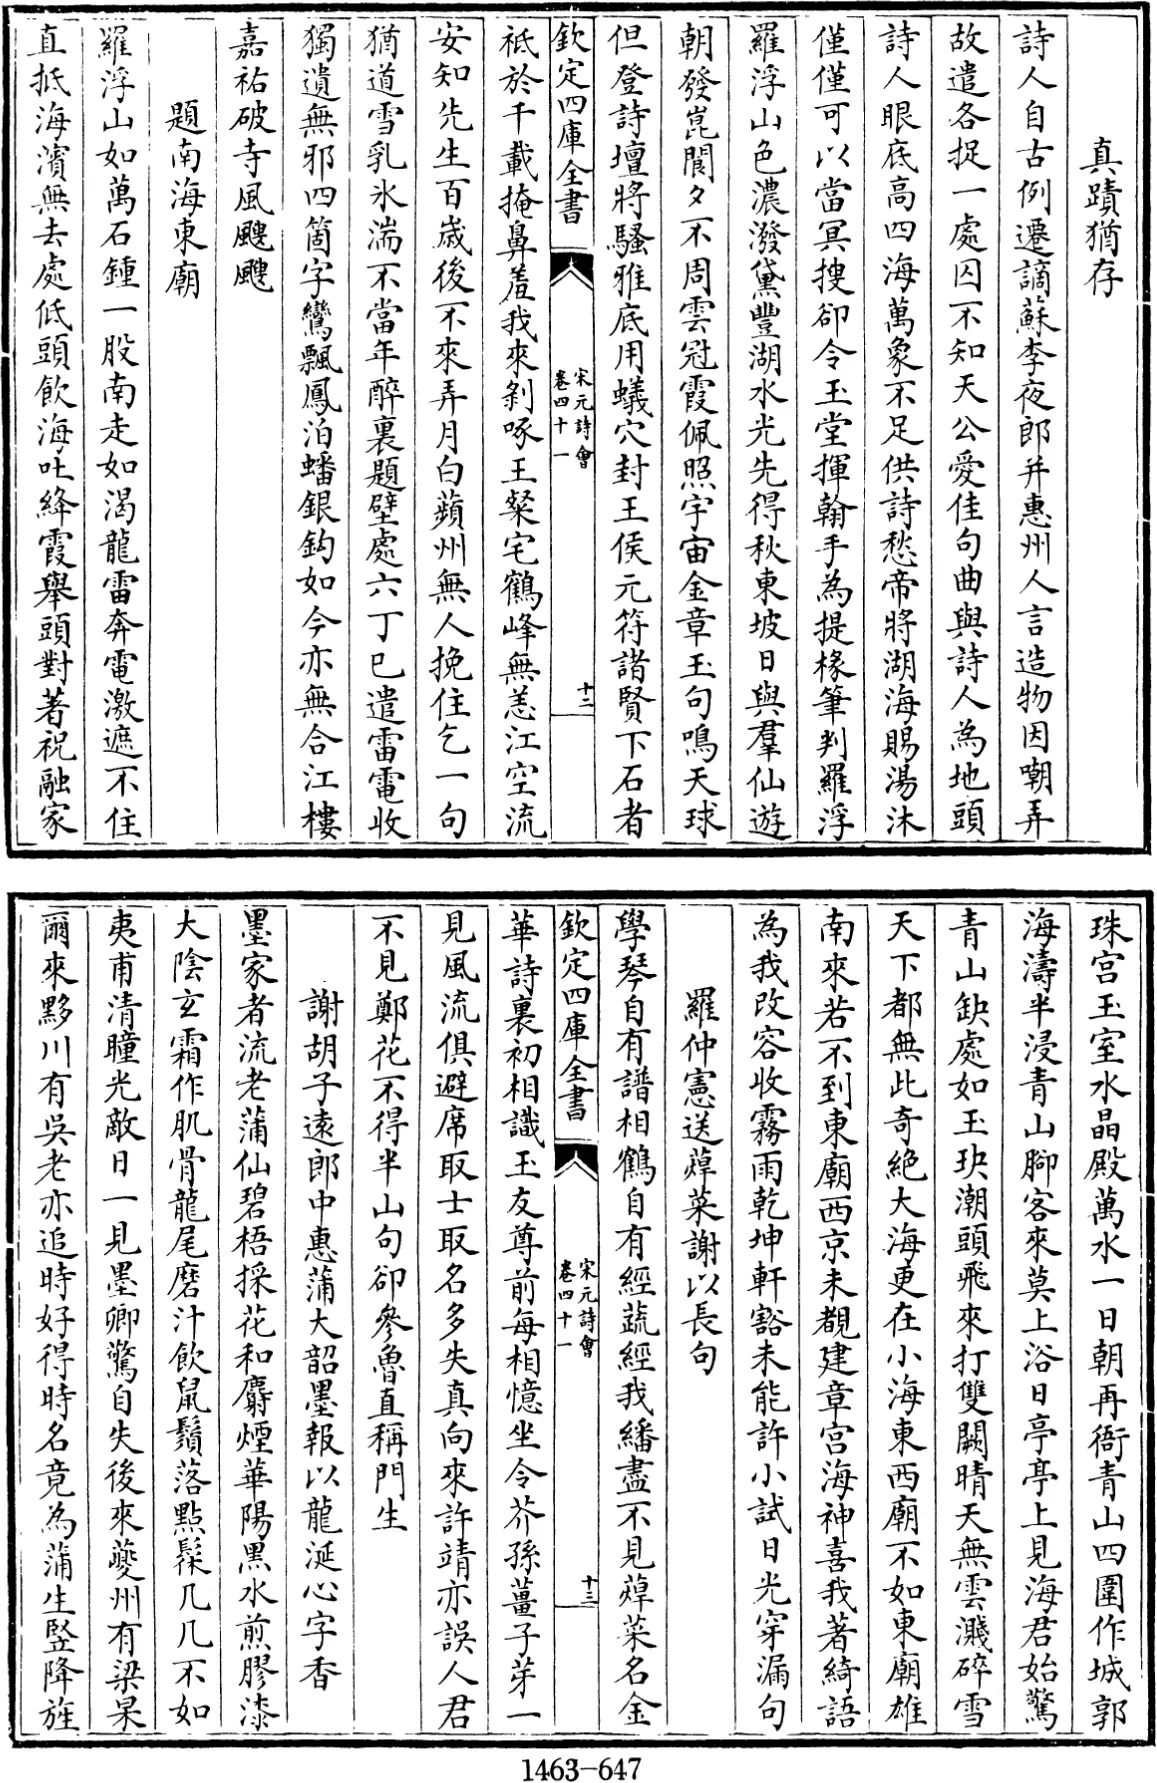 真蹟猶存
詩人自古例遷謫蘇李夜郎并惠州人言造物因嘲弄
故遣各捉一處囚不知天公愛佳句曲與詩人為地頭
詩人眼底高四海萬象不足供詩愁帝將湖海賜湯沐
僅僅可以當冥搜卻令玉堂揮翰手為提椽筆判羅浮
羅浮山色濃潑黛豐湖水光先得秋東坡日與羣仙遊
朝發崑閬夕不周雲冠霞佩照宇宙金章玉句鳴天球
但登詩壇將騷雅底用蟻穴封王侯元符諸賢下石者
欽定四庫全書
宋元詩會
卷四十一
十二
祗於千載掩鼻羞我來剝啄王粲宅鶴峰無恙江空流
安知先生百歲後不來弄月白蘋州無人挽住乞一句
猶道雪乳氷湍不當年醉裏題壁處六丁已遣雷電收
獨遺無邪四箇字鸞飄鳳泊蟠銀鈎如今亦無合江樓
嘉祐破寺風颼颼
題南海東廟
羅浮山如萬石鍾一股南走如渴龍雷奔電激遮不住
直抵海濱無去處低頭飲海吐絳霞舉頭對著祝融家
珠宫玉室水晶殿萬水一日朝再衙青山四圍作城郭
海濤半浸青山腳客來莫上浴日亭亭上見海君始驚
青山缺處如玉玦潮頭飛來打雙闕晴天無雲濺碎雪
天下都無此奇絶大海更在小海東西廟不如東廟雄
南來若不到東廟西京未覩建章宫海神喜我著綺語
為我改容收霧雨乾坤軒豁未能許小試日光穿漏句
羅仲憲送蔊菜謝以長句
學琴自有譜相鶴自有經蔬經我繙盡不見蔊菜名金
欽定四庫全書
宋元詩會
卷四十一
十三
華詩裏初相識玉友尊前每相憶坐令芥孫薑子芽一
見風流俱避席取士取名多失真向來許靖亦誤人君
不見鄭花不得半山句卻參魯直稱門生
謝胡子遠郎中惠蒲大韶墨報以龍涎心字香
墨家者流老蒲仙碧梧採花和麝煙華陽黒水煎膠漆
大陰玄霜作肌骨龍尾磨汁飲鼠鬚落點髹几几不如
夷甫清瞳光敵日一見墨卿驚自失後來夔州有梁杲
爾來黟川有吳老亦追時好得時名竟為蒲生竪降旌
1463-647